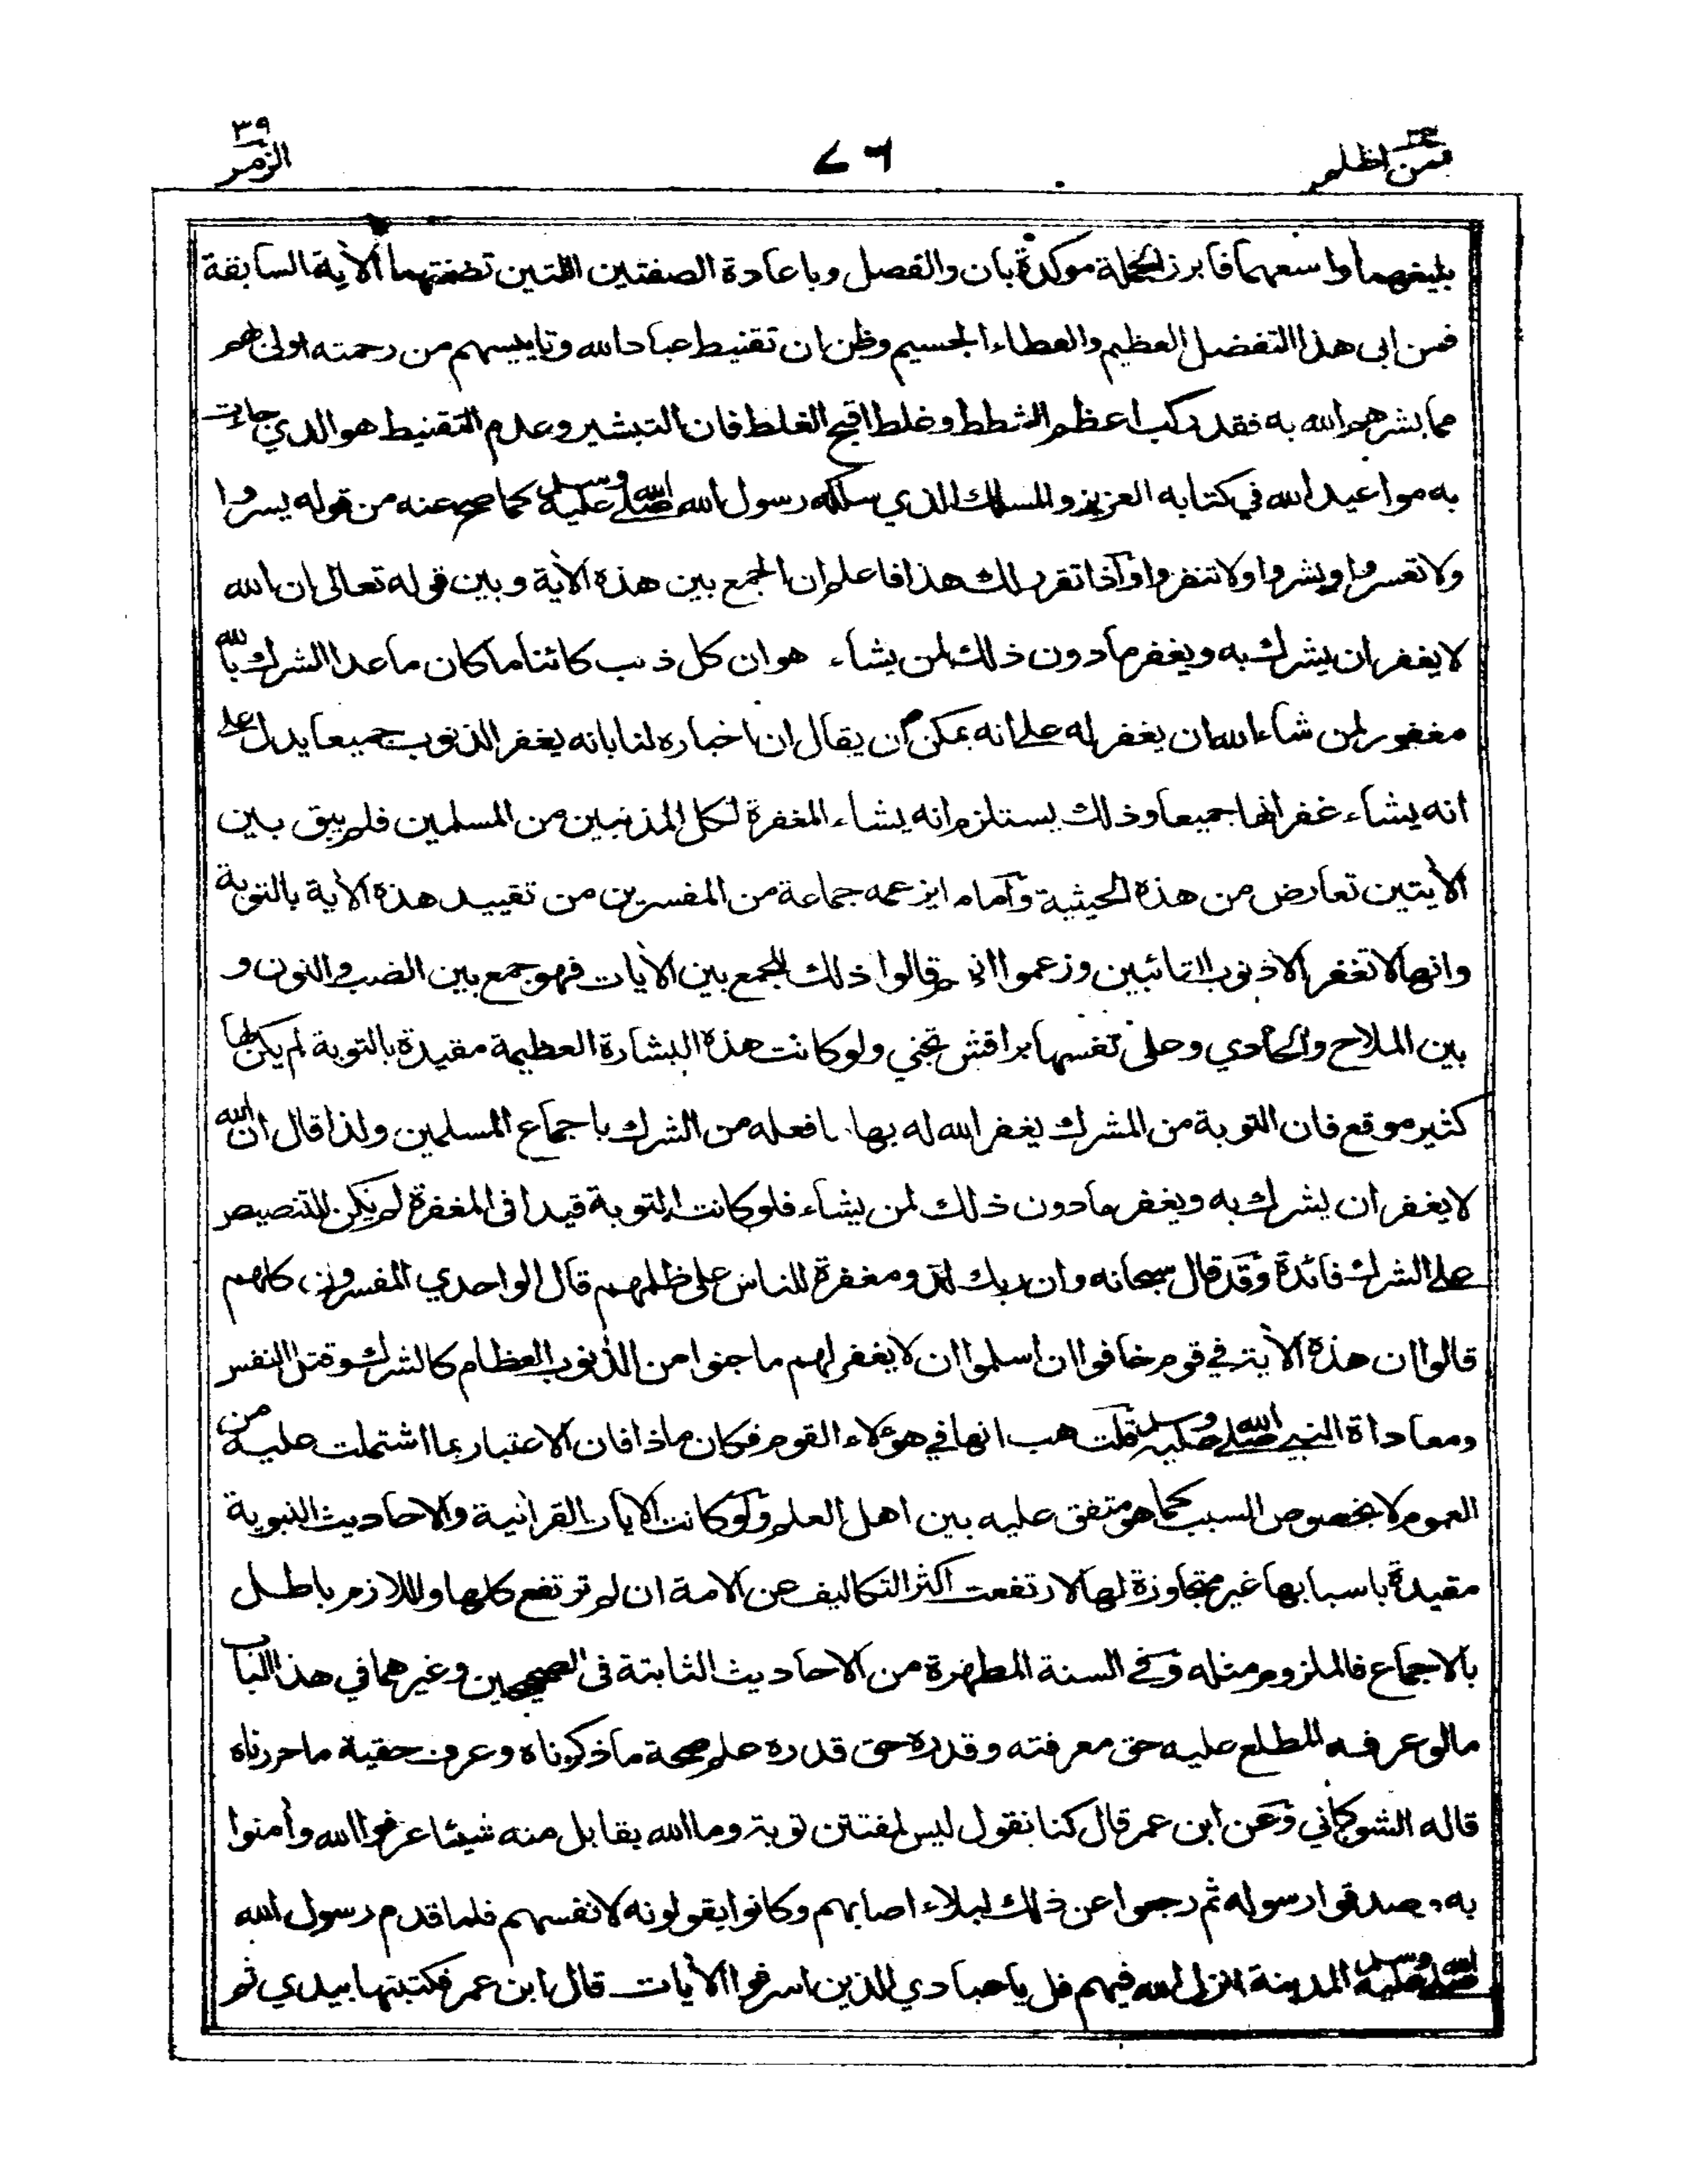 فمن اظلم ٢٤
٧٦
٣٩ الزمر
بليغهما واسعهما فابرز الجملة موكدة بان والفصل وباعادة الصفتين اللتين تضمنتهما الآية السابقة
فمن ابى هذا التفضل العظيم والعطاء الجسيم وظن ان تقنيط عباد الله وتاييسهم من رحمته اولى بهم
مما بشرهم الله به فقد ركب اعظم الشطط وغلط اقبح الغلط فان التبشير وعدم التقنيط هو الذي جاءت
به مواعيد الله في كتابه العزيز والمسلك الذي سلكه رسول الله صلى الله عليه وسلم كما صح عنه من قوله يسروا
ولا تعسروا وبشروا ولا تنفروا وآذا تقرر لك هذا فاعلم ان الجمع بين هذه الآية وبين قوله تعالى ان الله
لا يغفر ان يشرك به ويغفر ما دون ذلك لمن يشاء هو ان كل ذنب كائنا ما كان ما عدا الشرك بالله
مغفور لمن شاء الله ان يغفر له على انه يمكن ان يقال ان اخباره لنا بانه يغفر الذنوب جميعا يدل على
انه يشاء غفرانها جميعا وذلك يستلزم انه يشاء المغفرة لكل المذنبين من المسلمين فلم يبق بين
الآيتين تعارض من هذه الحيثية وآما ما يزعمه جماعة من المفسرين من تقييد هذه الآية بالتوبة
وانها لا تغفر الا ذنوب التائبين وزعموا انهم قالوا ذلك للجمع بين الآيات فهو جمع بين الضب والنون و
بين الملاح والحادي وعلى نفسها براقش تجني ولو كانت هذه البشارة العظيمة مقيدة بالتوبة لم يكن لها
كثير موقع فان التوبة من المشرك يغفر الله له بها ما فعله من الشرك باجماع المسلمين ولذا قال ان الله
لا يغفر ان يشرك به ويغفر ما دون ذلك لمن يشاء فلو كانت التوبة قيدا فى المغفرة لم يكن للتنصيص
على الشرك فائدة وقد قال سبحانه وان ربك لذو مغفرة للناس على ظلمهم قال الواحدي المفسرون كلهم
قالوا ان هذه الآية في قوم خافوا ان اسلموا ان لا يغفر لهم ما جنوا من الذنوب العظام كالشرك وقتل النفس
ومعاداة النبي صلى الله عليه وسلم قلت هب انها في هؤلاء القوم فكان ماذا فان الاعتبار بما اشتملت عليه من
العموم لا بخصوص السبب كما هو متفق عليه بين اهل العلم ولو كانت الآيات القرآنية والاحاديث النبوية
مقيدة باسبابها غير متجاوزة لها لارتفعت اكثر التكاليف عن الامة ان لم ترتفع كلها واللازم باطل
بالاجماع فالملزوم مثله وفي السنة المطهرة من الاحاديث الثابتة فى الصحيحين وغيرهما في هذا الباب
ما لو عرفه المطلع عليه حق معرفته وقدره حق قدره علم صحة ما ذكرناه وعرف حقية ما حررناه
قاله الشوكاني وعن ابن عمر قال كنا نقول ليس لمفتتن توبة وما الله بقابل منه شيئا عرفوا الله وأمنوا
به وصدقوا رسوله ثم رجعوا عن ذلك لبلاء اصابهم وكانوا يقولونه لانفسهم فلما قدم رسول الله
صلى الله عليه وسلم المدينة انزل الله فيهم قل يا عبادي الذين اسرفوا الآيات قال ابن عمر فكتبتها بيدي ثم